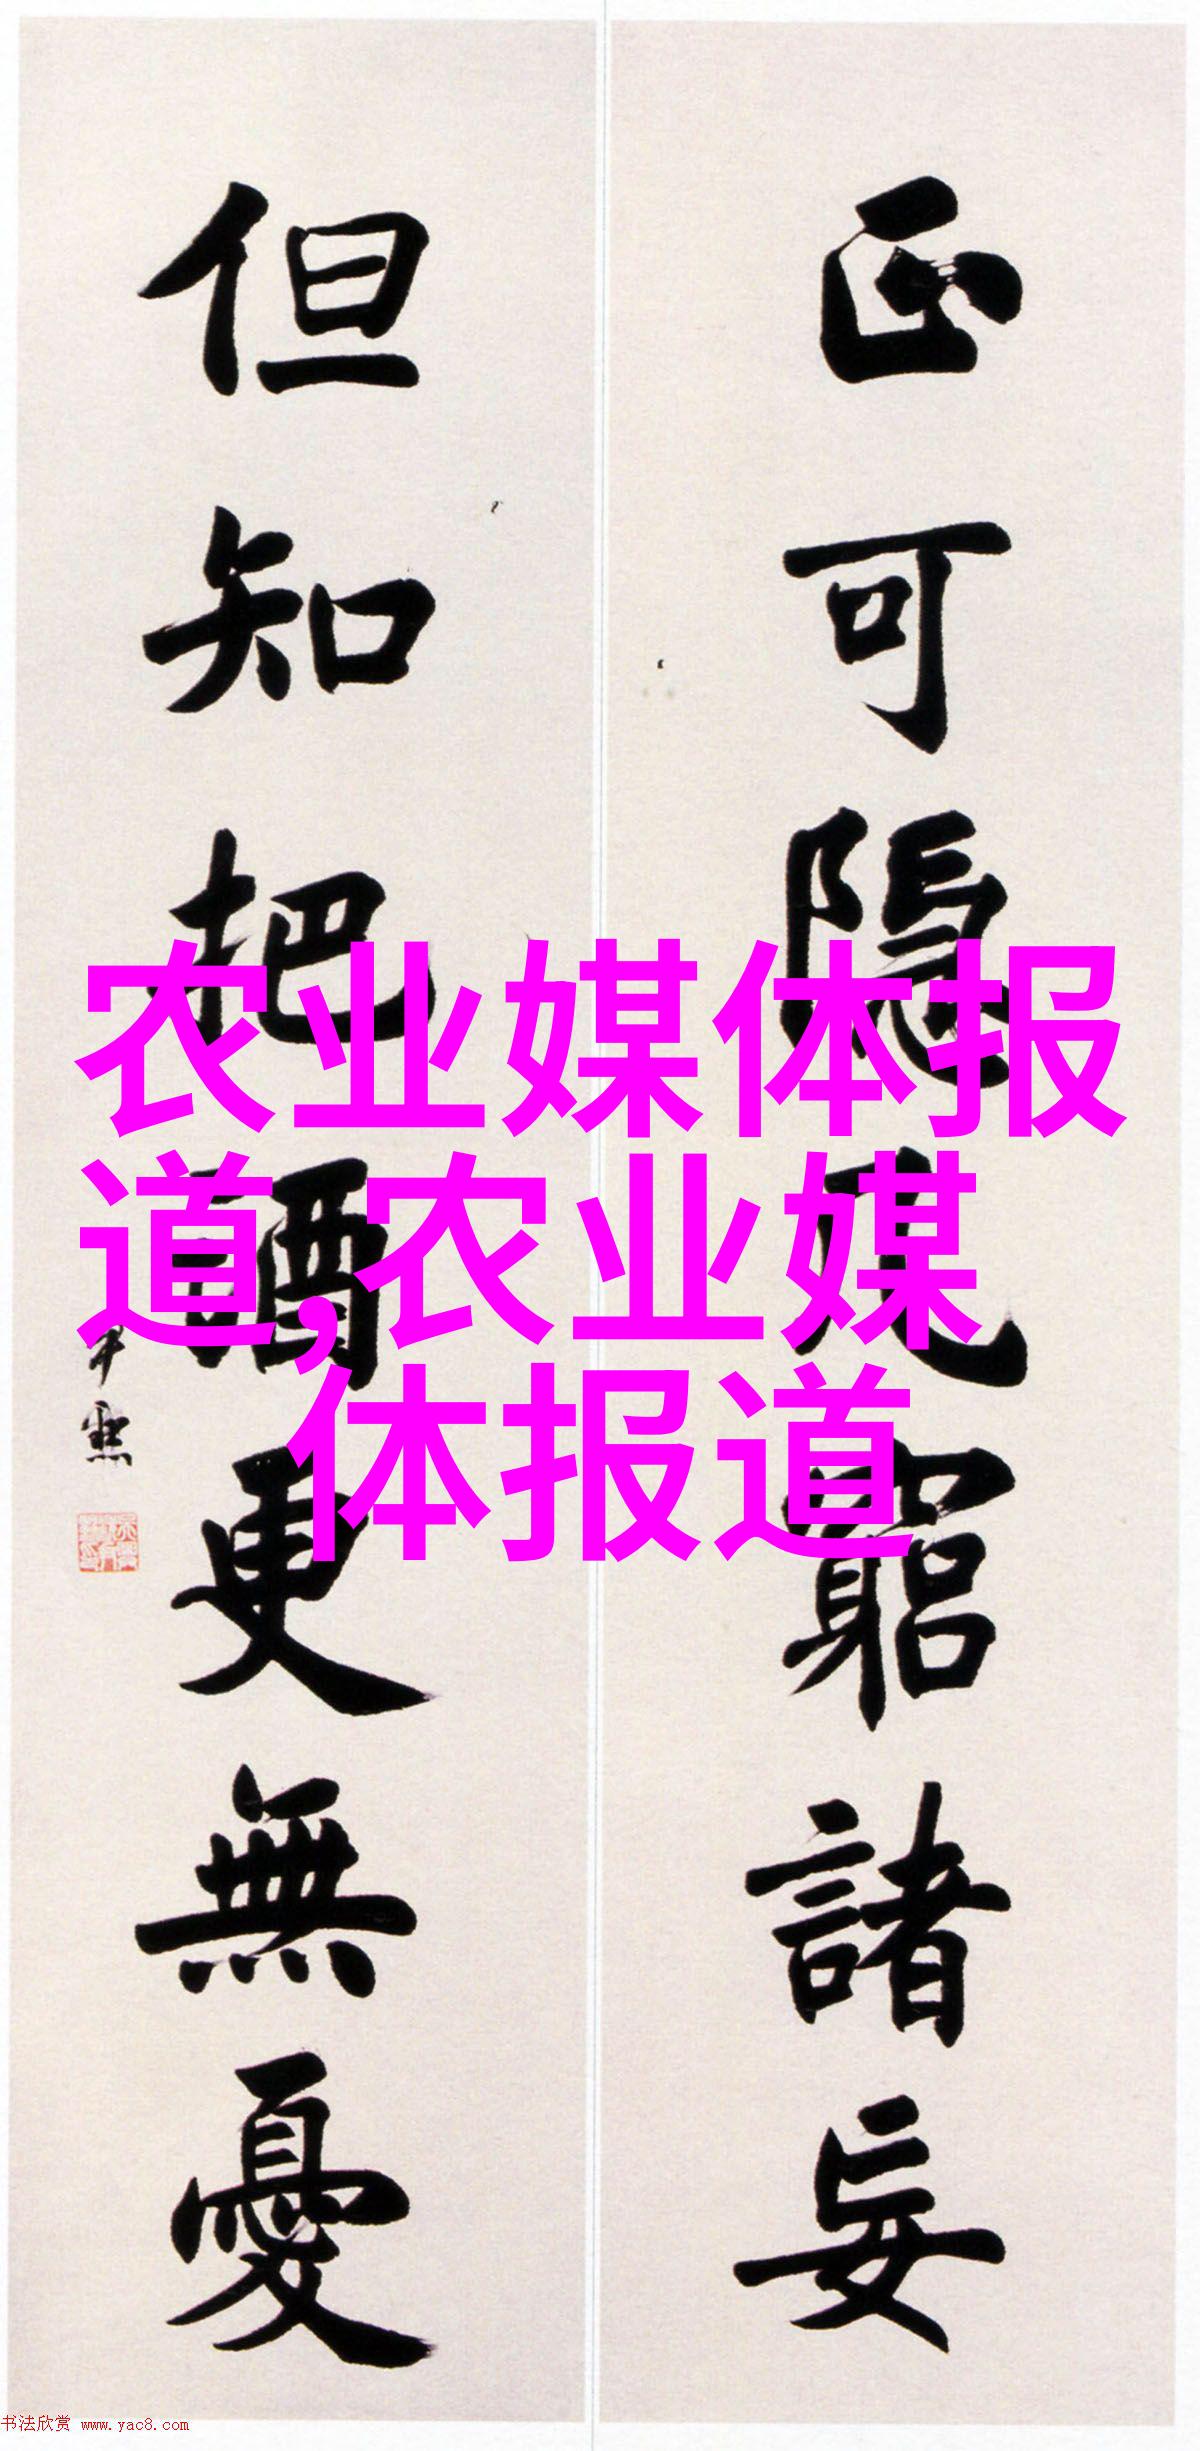 正可隱几窮諸妄
但知把酒更無憂
尹默
农业媒体报
道,农业媒
体报道
书法欣赏 www.yac8.com